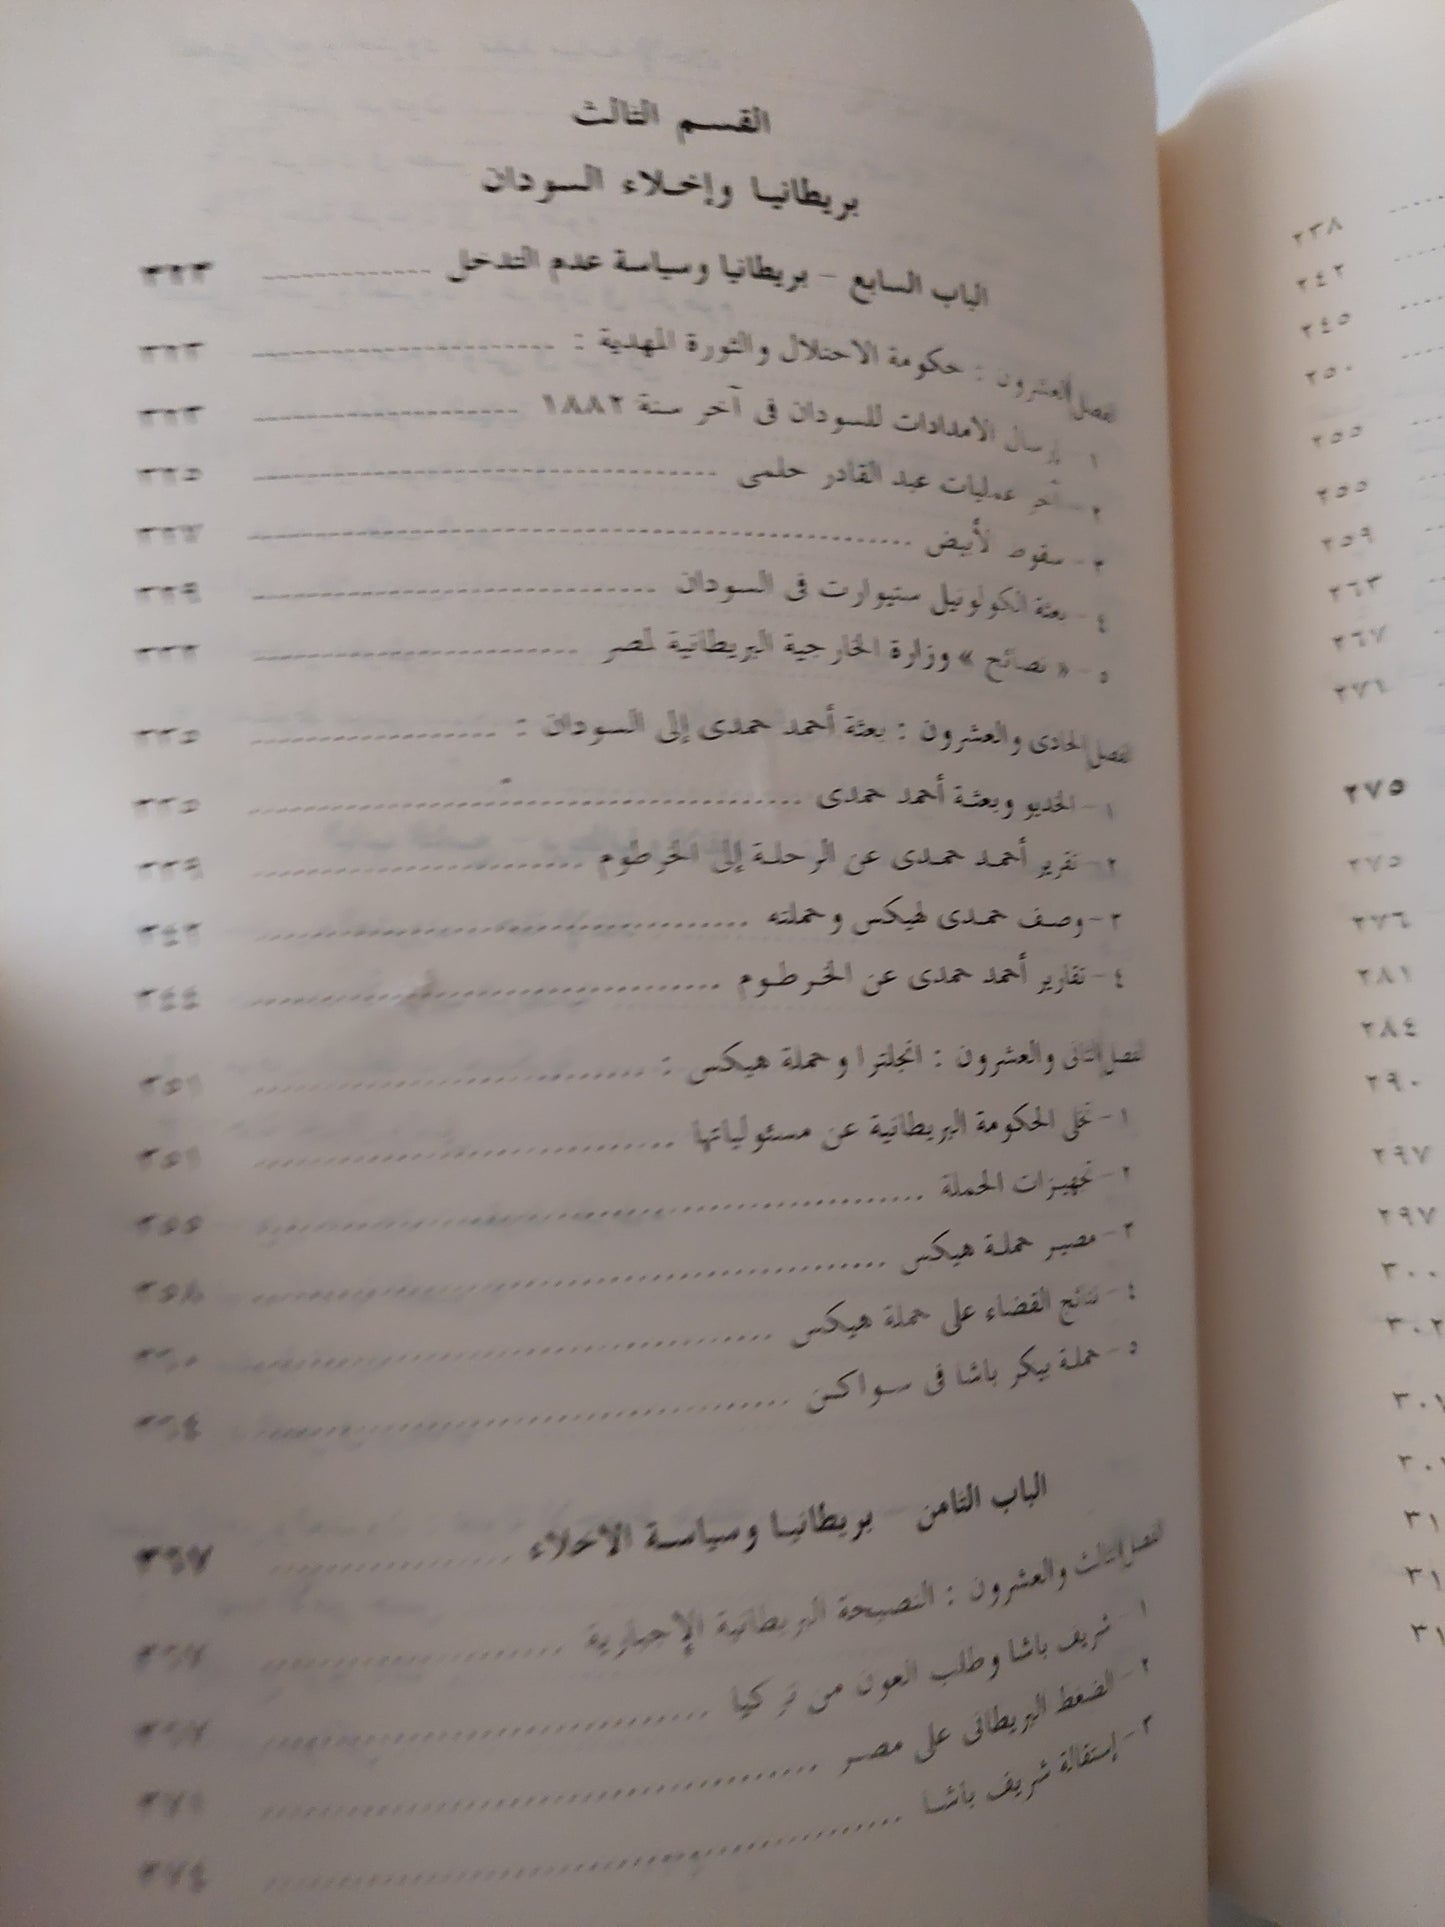 القسم الثالث
بريطانيا وإخلاء السودان
الباب السابع – بريطانيا وسياسة عدم التدخل ................ ٣٢٣
الفصل العشرون : حكومة الاحتلال والثورة المهدية : ................ ٣٢٣
١ – إرسال الامدادات للسودان فى آخر سنة ١٨٨٢ ................ ٣٢٣
٢ – آخر عمليات عبد القادر حلمى ................ ٣٢٥
٣ – سقوط الأبيض ................ ٣٢٧
٤ – بعثة الكولونيل ستيوارت فى السودان ................ ٣٢٩
٥ – « نصائح » وزارة الخارجية البريطانية لمصر ................
الفصل الحادى والعشرون : بعثة أحمد حمدى إلى السودان : ................ ٣٣٥
١ – الخديو وبعثة أحمد حمدى ................ ٣٣٥
٢ – تقرير أحمد حمدى عن الرحلة إلى الخرطوم ................ ٣٣٩
٣ – وصف حمدى لهيكس وحملته ................
٤ – تقارير أحمد حمدى عن الخرطوم ................ ٣٤٤
الفصل الثانى والعشرون : انجلترا وحملة هيكس : ................ ٣٥١
١ – تخلى الحكومة البريطانية عن مسئولياتها ................ ٣٥١
٢ – تجهيزات الحملة ................ ٣٥٥
٣ – مصير حملة هيكس ................ ٣٥٨
٤ – نتائج القضاء على حملة هيكس ................
٥ – حملة بيكر باشا فى سواكن ................ ٣٦٤
الباب الثامن – بريطانيا وسياسة الاخلاء ................ ٣٦٨
الفصل الثالث والعشرون : النصيحة البريطانية الإجبارية ................ ٣٦٨
١ – شريف باشا وطلب العون من تركيا ................ ٣٦٨
٢ – الضغط البريطانى على مصر ................ ٣٧١
٣ – إستقالة شريف باشا ................ ٣٧٤
٢٣٨
٢٤٢
٢٤٥
٢٥٠
٢٥٥
٢٥٥
٢٥٩
٢٦٣
٢٦٧
٢٧٥
٢٧٥
٢٧٦
٢٨١
٢٨٤
٢٩٠
٢٩٧
٢٩٧
٣٠٠
٣٠٢